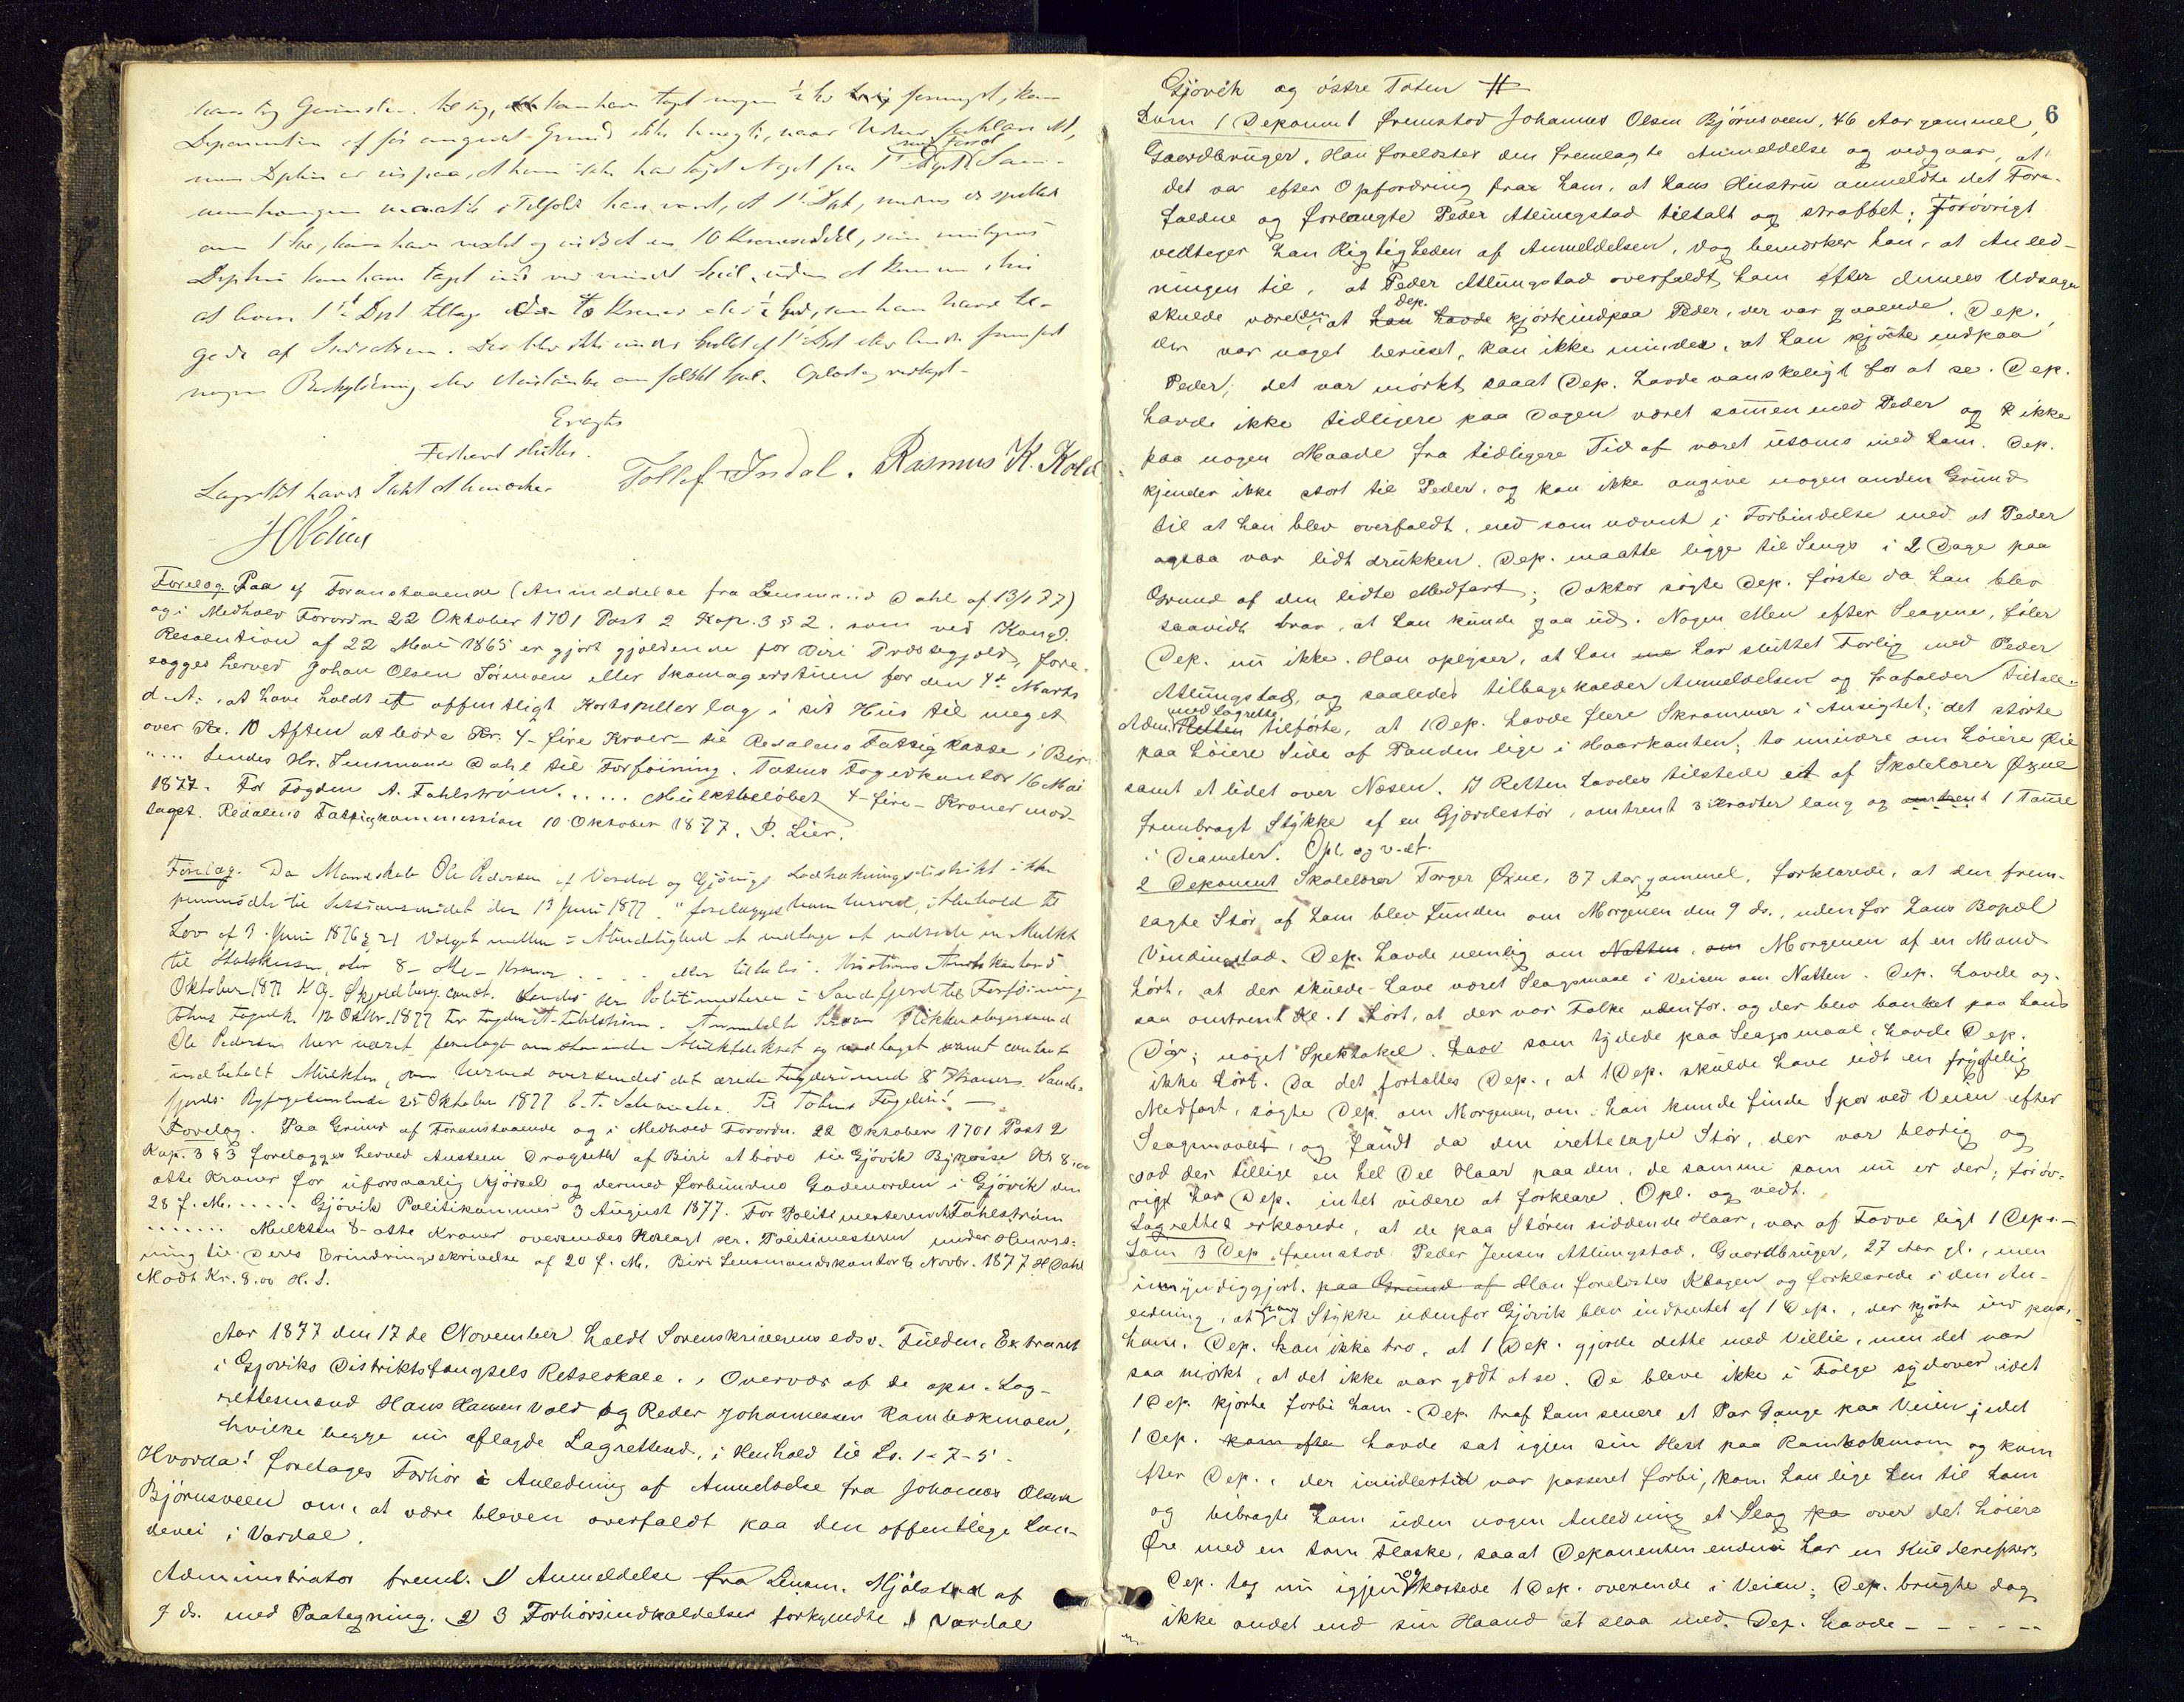 han tog Gevinsten til sig, kan have tagt nogen
Deponenten af før angivne Grund ikke
med Forsæt
men Dptn er vis paa, at han ikke har taget Noget fra 1ste Dpt.
at 1ste Dpt, medens de spillede
om 1 Kr, kan have vexlet og indsat en 10 Kroneseddel, som
Dephn kan have taget ind ved uden at kunne
at levere 1ste Dpt tilbage de 10 Kroner
gede af Der blev ikke
nogen Beskyldning eller om falskt Spil. Oplæst og vedtaget.
Eragtes
Forhøret sluttet.
Lagrettet havde Intet at bemærke.
Tollef Indal. Rasmus K. Kold
Forelæg Paa af Foranstaaende (Anmeldelse fra Lensmand Dahl af 13/1 77)
og i Medhold Forordn 22 Oktober 1701 Post 2 Kap. 3 § 2. som ved Kongl.
Resolution af 22 Mai 1865 er gjort gjældende for Biri Præstegjeld, fore-
lægges herved Johan Olsen Sørmoen eller Skomagerstuen for den 4de Marts
d. A. at have holdt et offentligt Kortspillerlag i sit Hus til meget
over Kl. 10 Aften at bøde Kr. 4 - fire Kroner - til Redalens Fattigkasse i Biri
" .... Sendes Hr. Lensmand Dahl til Forføining. Totens Fogedkontor 16 Mai
1877. For Fogden A. Fahlstrøm ..... Mulktbeløbet 4 - fire - Kroner mod-
taget. Redalens Fattigkommission 10 Oktober 1877. P. Lier.
Forelæg. Da Mandskab Ole Pedersen af Vardal og Gjøviks Lodtrækningsdistrikt ikke
fremmødte til Sessionsmødet den 13 Juni 1877. " forelægges ham herved, i Henhold til
Lov af 3 Juni 1876 § 21 Valget mellem - Mindelighed at vedtage at udrede en Mulkt
til Statskassen, stor 8 - otte - Kroner . . . eller tiltales. Kristians Amtskontor
Oktober 1877 Skjoldborg const. Sendes Hr Politimesteren i Sandefjord til Forføining
Totens Fogedk. 12 Oktbr. 1877 For Fogden A. Fahlstrøm. Anmeldte Person Blikkenslagersvend
Ole Pedersen har været forelagt omstaaende Mulktdekret og vedtaget samt contant
indbetalt Mulkten, som herved oversendes det ærede Fogderi med 8 Kroner. Sande-
fjords Byfogedembede 25 Oktober 1877 C. T. Schanche. Til Totens Fogderi. —
Forelæg. Paa Grund af Foranstaaende og i Medhold Forordn. 22 Oktober 1701 Post 2
Kap. 3 § 3 forelægges herved Austen Dragseth af Biri at bøde til Gjøvik Bykasse Kr 8.00
otte Kroner for uforsvarlig Kjørsel og dermed forbunden Gadeuorden i Gjøvik den
28 f. M. ...... Gjøvik Politikammer 3 August 1877. For Politimesteren A Fahlstrøm
....... Mulkten 8 - otte Kroner oversendes Hr. Politimesteren under Henvis-
ning til Deres Erindringsskrivelse af 20 f. M. Biri Lensmandskontor 6 Novbr. 1877 H Dahl
Modt. Kr. 8.00 H. S.
Aar 1877 den 17 de November holdt Sorenskriverens edsv. Fuldm. Extraret
i Gjøviks Distriktsfængsels Retslokale, i Overvær af de opn. Lag-
rettesmænd Hans Hansen Vold og Peder Johannessen Rambækmoen,
hvilke begge nu aflagde Lagretteed, i Henhold til Lo. 1-7-5.
Hvorda! foretages Forhør i Anledning af Anmeldelse fra Johannes Olsen
Bjørnsveen om, at være bleven overfaldt paa den offentlige Lan-
devei i Vardal.
Administrator freml. 1) Anmeldelse fra Lensm. Mjølstad af
9 ds. med Paategning. 2) 3 Forhørsindkaldelser forkyndte i Vardal
6
Gjøvik og østre Toten #
Som 1 Deponent fremstod Johannes Olsen Bjørnsveen, 46 Aar gammel,
Gaardbruger. Han forelæstes den fremlagte Anmeldelse og vedgaar, at
det var efter Opfordring fra ham, at hans Hustru anmeldte det Fore-
faldne og forlangte Peder Alungstad tiltalt og straffet; Forøvrigt
vedtager han Rigtigheden af Anmeldelsen, dog bemærker han, at Anled-
ningen til, at Peder Alungstad overfaldt ham efter dennes Udsagn
skulde være den at dep. han havde kjørt ind paa Peder, der var gaaende. Dep.
der var noget beruset, kan ikke mindes, at han kjørte ind paa
Peder; det var mørkt, saaat Dep. havde vanskeligt for at se. Dep.
havde ikke tidligere paa Dagen været sammen med Peder og ikke
paa nogen Maade fra tidligere Tid af været usams med ham. Dep.
kjender ikke stort til Peder, og kan ikke angive nogen anden Grund
til at han blev overfaldt, end som nævnt i Forbindelse med at Peder
ogsaa var lidt drukken. Dep. maatte ligge til Sengs i 2 Dage paa
Grund af den lidte Medfart; Doktor søgte Dep. første da han blev
saavidt brav, at han kunde gaa ud. Nogen Men efter Slagene, føler
Dep. nu ikke. Han oplyser, at han har sluttet Forlig med Peder
Alungstad, og saaledes tilbagekalder Anmeldelsen og frafalder Tiltale.
Adm. med Lagrette Retten tilførte, at 1 Dep. havde flere Skrammer i Ansigtet; det største
paa høiere Side af Panden lige i Haarkanten; to mindre om høiere Øie
samt et lidet over Næsen. I Retten havdes tilstede et af Skolelærer Øxne
frembragt Stykke af en Gjærdestør, omtrent 3 Kvarter lang og omtrent 1 Tomme
i Diameter. Opl. og vedt.
2 Deponent Skolelærer Torger Øxne, 37 Aar gammel, forklarede, at den frem-
lagte Stør af ham blev funden om Morgenen den 9 ds., udenfor hans Bopæl
Vindingstad. Dep. havde nemlig om Natten, om Morgenen af en Mand
hørt, at der skulde have været Slagsmaal i Veien om Natten. Dep. havde og-
saa omtrent Kl. 1 hørt, at der var Folk udenfor, og der blev banket paa hans
Dør; noget Spektakel, som tydede paa Slagsmaal, havde Dep.
ikke hørt. Da det fortaltes Dep., at 1 Dep. skulde have lidt en frygtelig
Medfart, søgte Dep. om Morgenen, om han kunde finde Spor ved Veien efter
Slagsmaalet, og fandt da den irettelagte Stør, der var blodig og
sad der tillige en hel Del Haar paa den, de samme som nu er der; forøv-
rigt har Dep. intet videre at forklare. Opl. og vedt.
Lagrettet erklærede, at de paa Støren siddende Haar, var af Farve ligt 1 Deps. —
Som 3 Dep. fremstod Peder Jensen Alungstad, Gaardbruger, 27 Aar gl., men
umyndiggjort. paa Grund af Han forelæstes Klagen og forklarede i den An-
ledning, at han et Stykke udenfor Gjøvik blev indhentet af 1 Dep., der kjørte ind paa
ham. Dep. kan ikke tro, at 1 Dep. gjorde dette med Villie, men det var
saa mørkt, at det ikke var godt at se. De bleve ikke i Følge sydover, idet
1 Dep. kjørte forbi ham. Dep. traf ham senere et Par Gange paa Veien; idet
1 Dep. kom efter havde sat igjen sin Hest paa Rambækmoen og kom
efter Dep., der imidlertid var passeret forbi, kom han lige hen til ham
og bibragte ham uden nogen Anledning et Slag pa over det høiere
Øre med en tom Flaske, saaat Deponenten endnu har en Kul derefter.
Dep. tog nu igjen og kastede 1 Dep. overende i Veien; Dep. brugte dog
ikke andet end sin Haand at slaa med. Dep. havde - - - - -